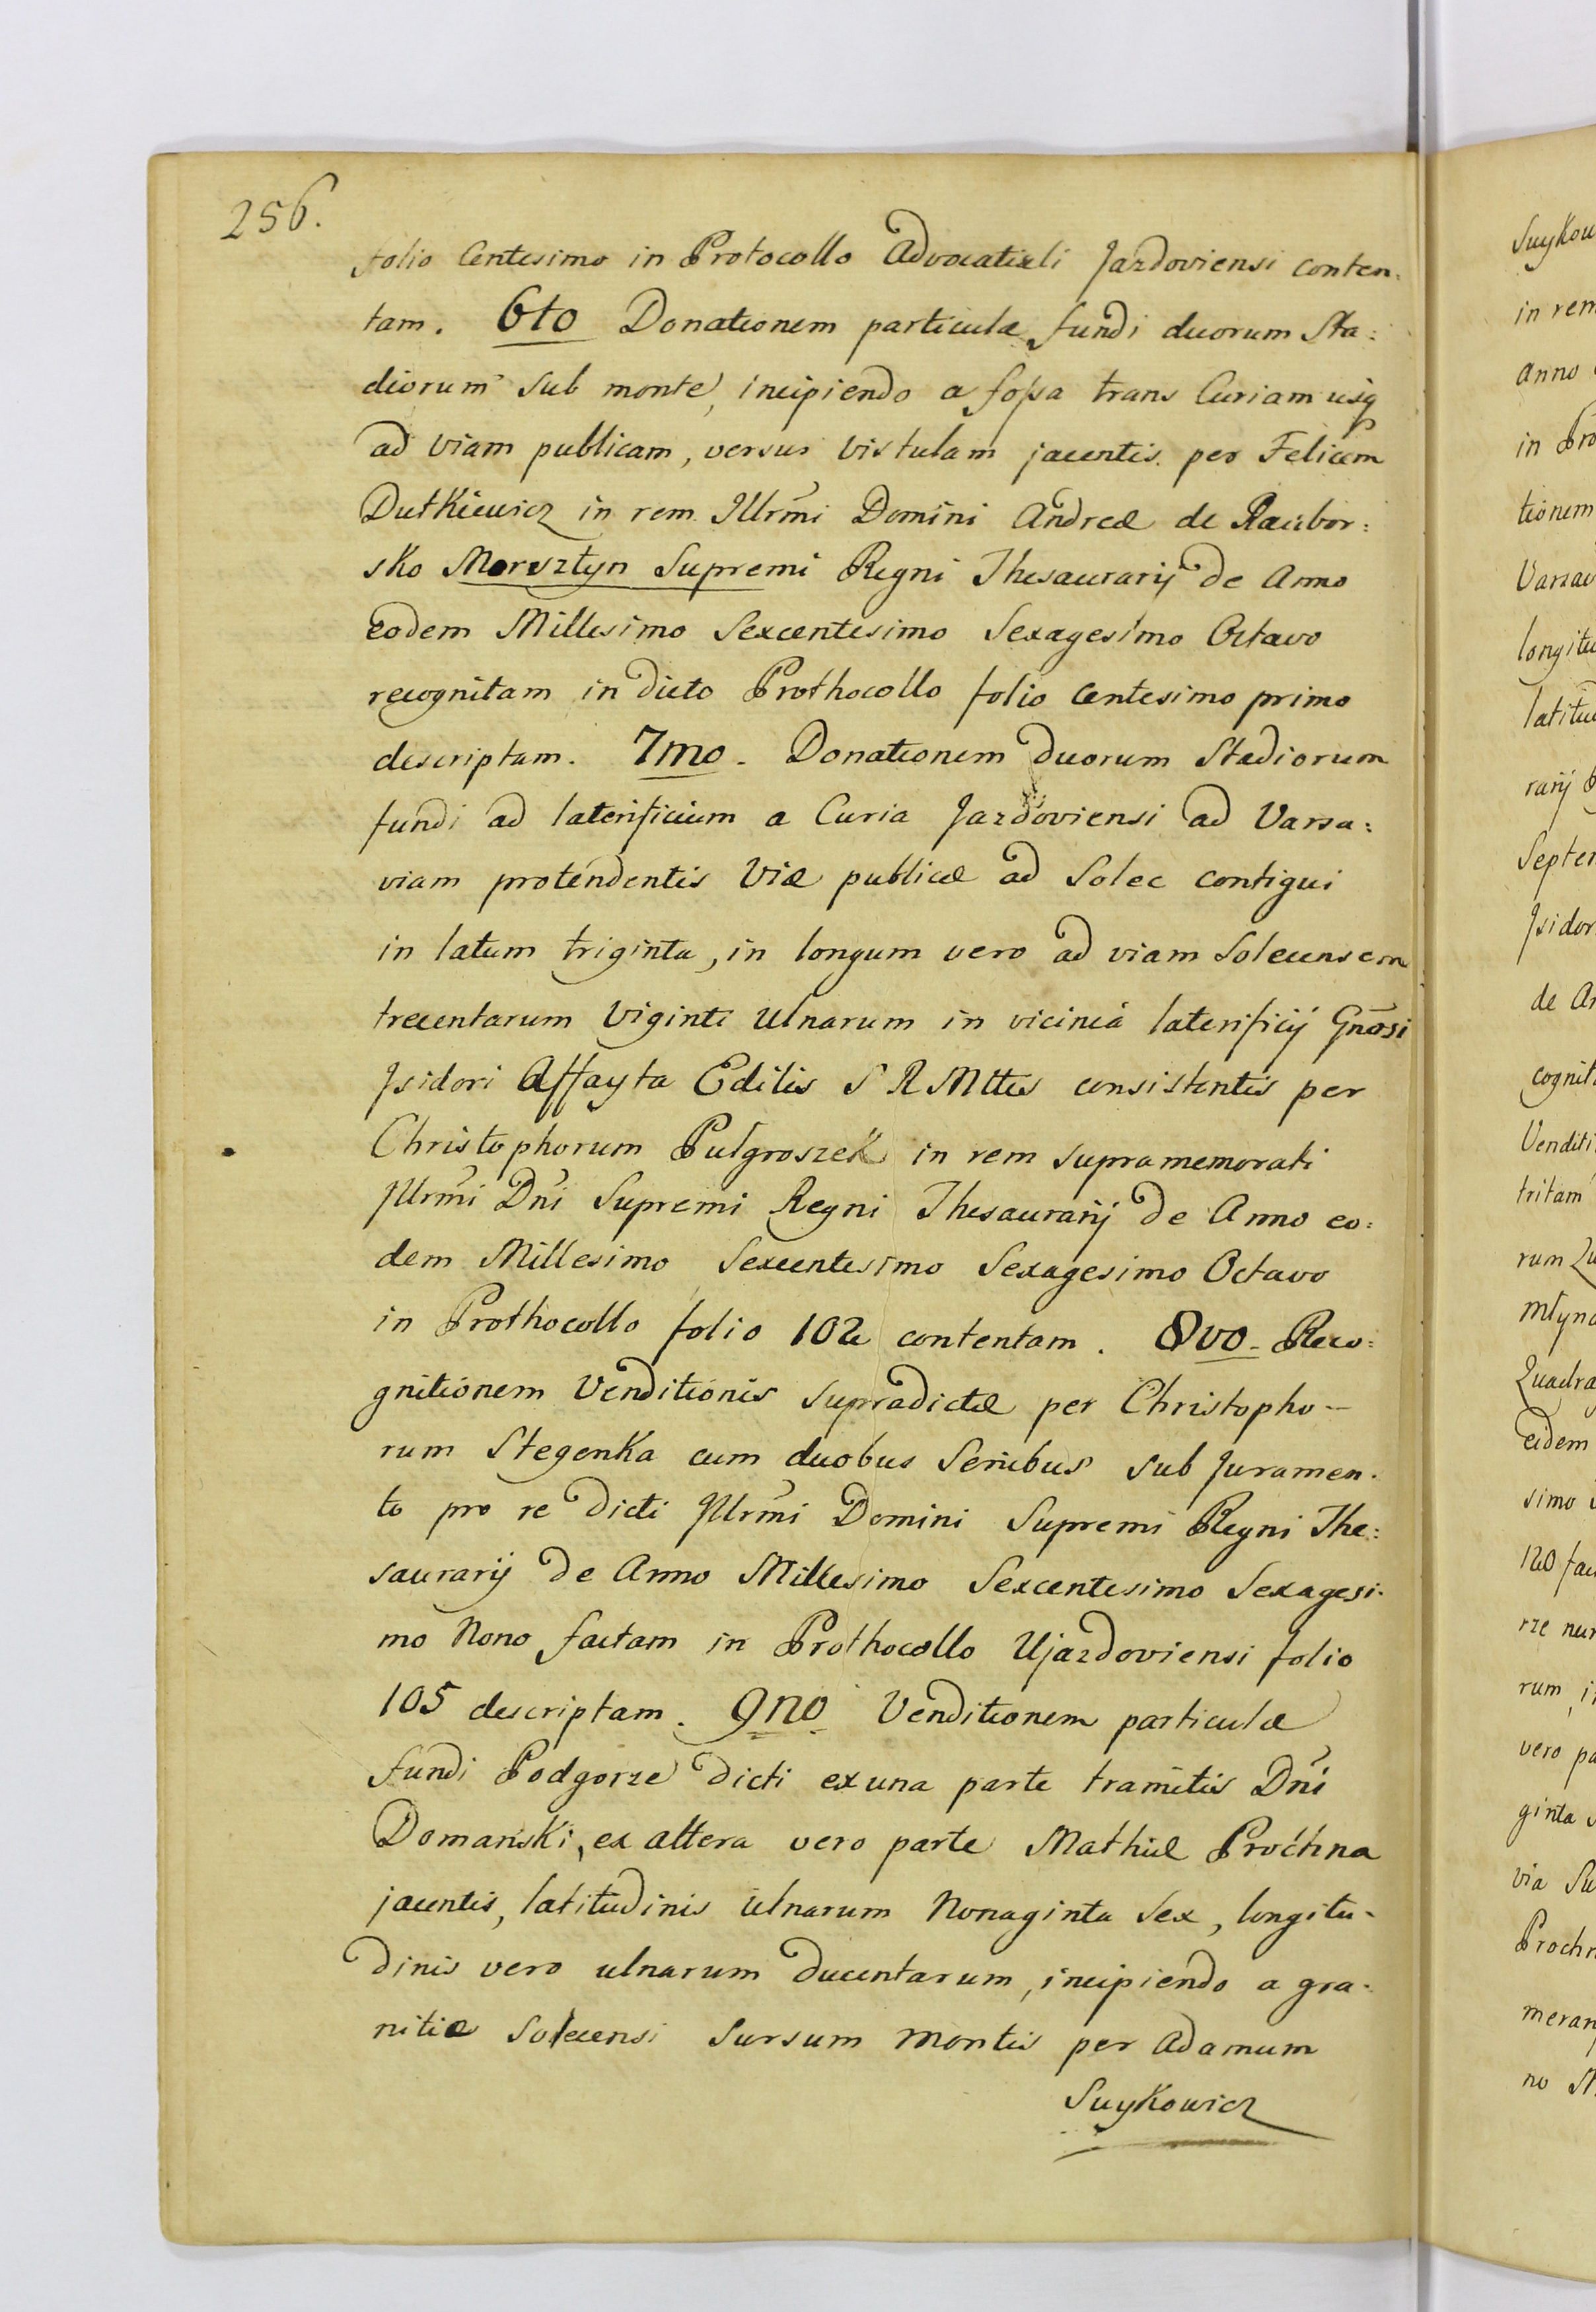 256.
folio Centesimo in Protocollo Advocatiali Jazdoviensi conten:
tam. 6to Donationem particulæ fundi duorum Sta:
diorum sub monte, incipiendo a fossa trans Curiam usq
ad viam publicam, versus Vistulam jacentis per Felicem
Dutkiewicz in rem Illrmi Domini Andreæ de Racibor:
sko Morsztyn Supremi Regni Thesaurarij de Anno
eodem Millesimo Sexcentesimo Sexagesimo Octavo
recognitam in dicto Prothocollo folio Centesimo primo
descriptam. 7mo. Donationem duorum Stadiorum
fundi ad laterificium a Curia Jazdoviensi ad Varsa:
viam protendentis Viæ publicæ ad Solec contigui
in latum triginta, in longum vero ad viam Solecensem
trecentarum Viginti Ulnarum in vicinia laterificij Gnosi
Isidori Affayta Edilis S R Mttis consistentis per
Christophorum Pulgroszek in rem supramemorati
Illrmi Dni Supremi Regni Thesaurarij de Anno eo:
dem Millesimo Sexcentesimo Sexagesimo Octavo
in Prothocollo folio 102 contentam. 8vo. Reco:
gnitionem Venditionis supradictæ per Christopho-
rum Stegenka cum duobus Senibus sub Juramen-
to pro re dicti Illrmi Domini Supremi Regni The:
saurarij de Anno Millesimo Sexcentesimo Sexagesi-
mo Nono factam in Prothocollo Ujazdoviensi folio
105 descriptam. 9no Venditionem particulæ
fundi Podgorze dicti ex una parte tramitis Dni
Domański, ex altera vero parte Mathiæ Prochna
jacentis, latitudinis ulnarum Nonaginta Sex, longitu-
dinis vero ulnarum ducentarum, incipiendo a gra-
nitie Solecensi sursum montis per Adamum
Suykowicz
Suykow
in rem
anno
in Pro
tionem
Varsav
longitu
latitud
rarij
Septem
Isidor
de An
cognit
Venditi
tritam
rum
Mlyno
Quadra
eidem
simo
120 fac
rze nun
rum
vero pa
ginta
via Su
Prochn
meran
no M